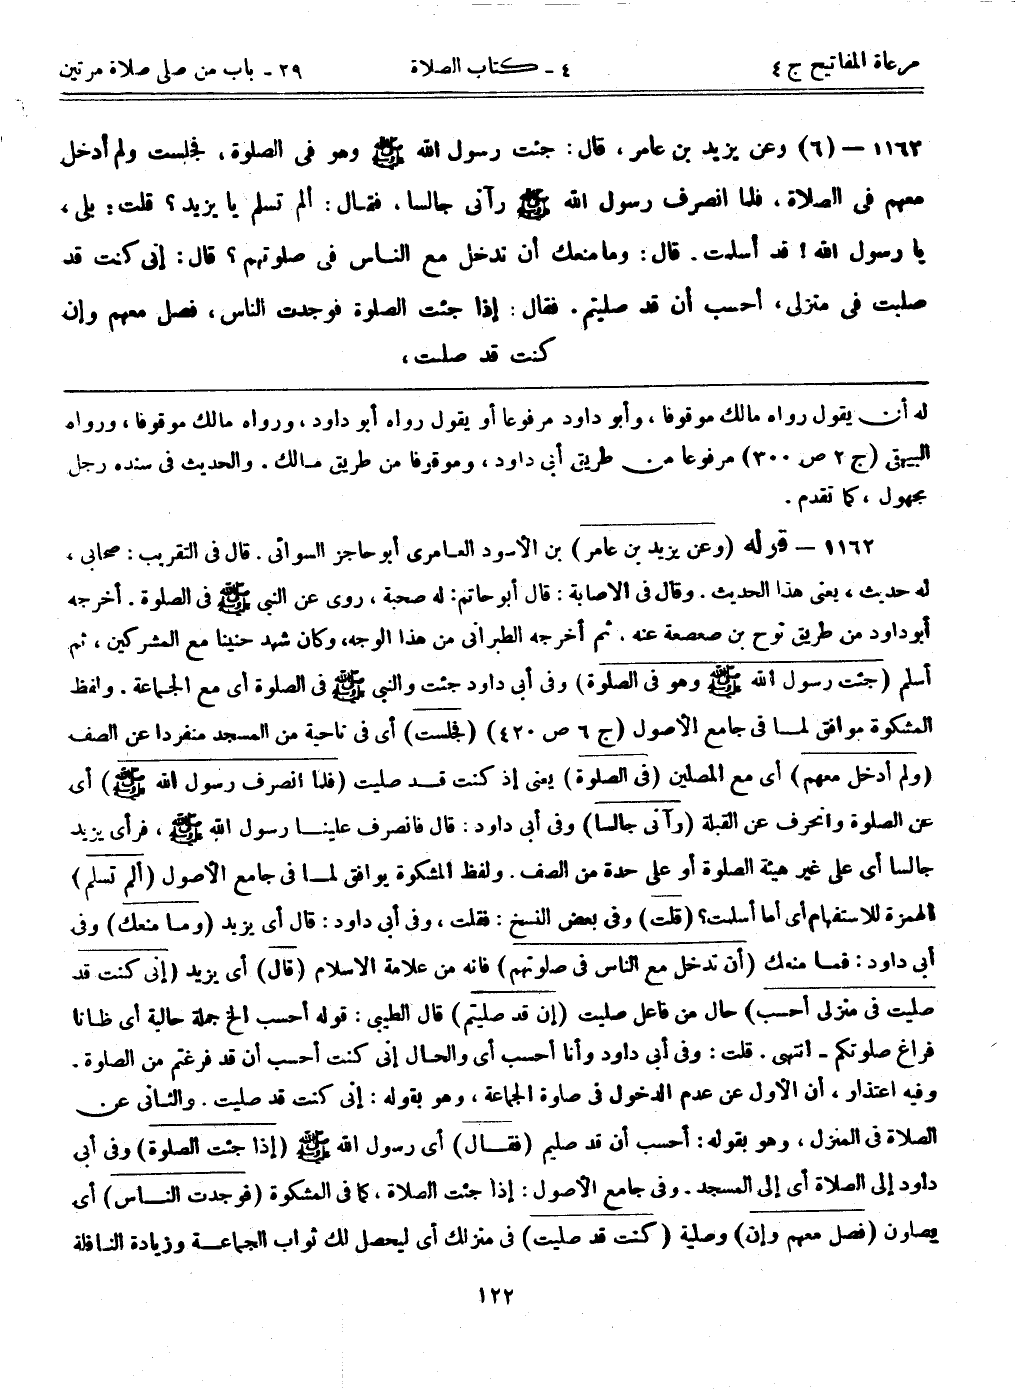 مرعاة المفاتيح ج ٤
٤ - كتاب الصلاة
٢٩ - باب من صلى صلاة مرتين
١١٦٣ – (٦) وعن يزيد بن عامر، قال: جئت رسول الله ﷺ وهو فى الصلوة، فجلست ولم أدخل
معهم فى الصلاة، فلما انصرف رسول الله ﷺ رآنى جالسا، فقال: ألم تسلم يا يزيد؟ قلت: بلى،
يا رسول الله! قد أسلمت. قال: وما منعك أن تدخل مع الناس فى صلوتهم؟ قال: إنى كنت قد
صليت فى منزلى، أحسب أن قد صليتم. فقال: إذا جئت الصلوة فوجدت الناس، فصل معهم وإن
كنت قد صليت،
له أن يقول رواه مالك موقوفا، وأبو داود مرفوعا أو يقول رواه أبو داود، ورواه مالك موقوفا، ورواه
البيهقى (ج ٢ ص ٣٠٠) مرفوعا من طريق أبى داود، وموقوفا من طريق مالك. والحديث فى سنده رجل
مجهول، كما تقدم.
١١٦٢ – قوله (وعن يزيد بن عامر) بن الأسود العامرى أبو حاجز السوائى. قال فى التقريب: صحابى،
له حديث، يعنى هذا الحديث. وقال فى الاصابة: قال أبو حاتم: له صحبة، روى عن النبى ﷺ فى الصلوة. أخرجه
أبو داود من طريق نوح بن صعصعة عنه. ثم أخرجه الطبرانى من هذا الوجه، وكان شهد حنينا مع المشركين، ثم
أسلم (جئت رسول الله ﷺ وهو فى الصلوة) وفى أبى داود جئت والنبى ﷺ فى الصلوة أى مع الجماعة. ولفظ
المشكوة موافق لما فى جامع الأصول (ج ٦ ص ٤٢٠) (فجلست) أى فى ناحية من المسجد منفردا عن الصف
(ولم أدخل معهم) أى مع المصلين (فى الصلوة) يعنى إذ كنت قد صليت (فلما انصرف رسول الله ﷺ) أى
عن الصلوة وانحرف عن القبلة (رآنى جالسا) وفى أبى داود: قال فانصرف علينا رسول الله ﷺ، فرأى يزيد
جالسا أى على غير هيئة الصلوة أو على حدة من الصف. ولفظ المشكوة يوافق لما فى جامع الأصول (ألم تسلم)
الهمزة للاستفهام أى أما أسلمت؟ (قلت) وفى بعض النسخ: فقلت، وفى أبى داود: قال أى يزيد (وما منعك) وفى
أبى داود: فما منعك (أن تدخل مع الناس فى صلوتهم) فانه من علامة الاسلام (قال) أى يزيد (إنى كنت قد
صليت فى منزلى أحسب) حال من فاعل صليت (إن قد صليتم) قال الطيبى: قوله أحسب الخ جملة حالية أى ظانا
فراغ صلوتكم - انتهى. قلت: وفى أبى داود وأنا أحسب أى والحال إنى كنت أحسب أن قد فرغتم من الصلوة.
وفيه اعتذار، أن الأول عن عدم الدخول فى صلوة الجماعة، وهو بقوله: إنى كنت قد صليت. والثانى عن
الصلاة فى المنزل، وهو بقوله: أحسب أن قد صليم (فقال) أى رسول الله ﷺ (إذا جئت الصلوة) وفى أبى
داود إلى الصلاة أى إلى المسجد. وفى جامع الأصول: إذا جئت الصلاة، كما فى المشكوة (فوجدت الناس) أى
يصلون (فصل معهم وإن) وصلية (كنت قد صليت) فى منزلك أى ليحصل لك ثواب الجماعة وزيادة النافلة
١٢٢